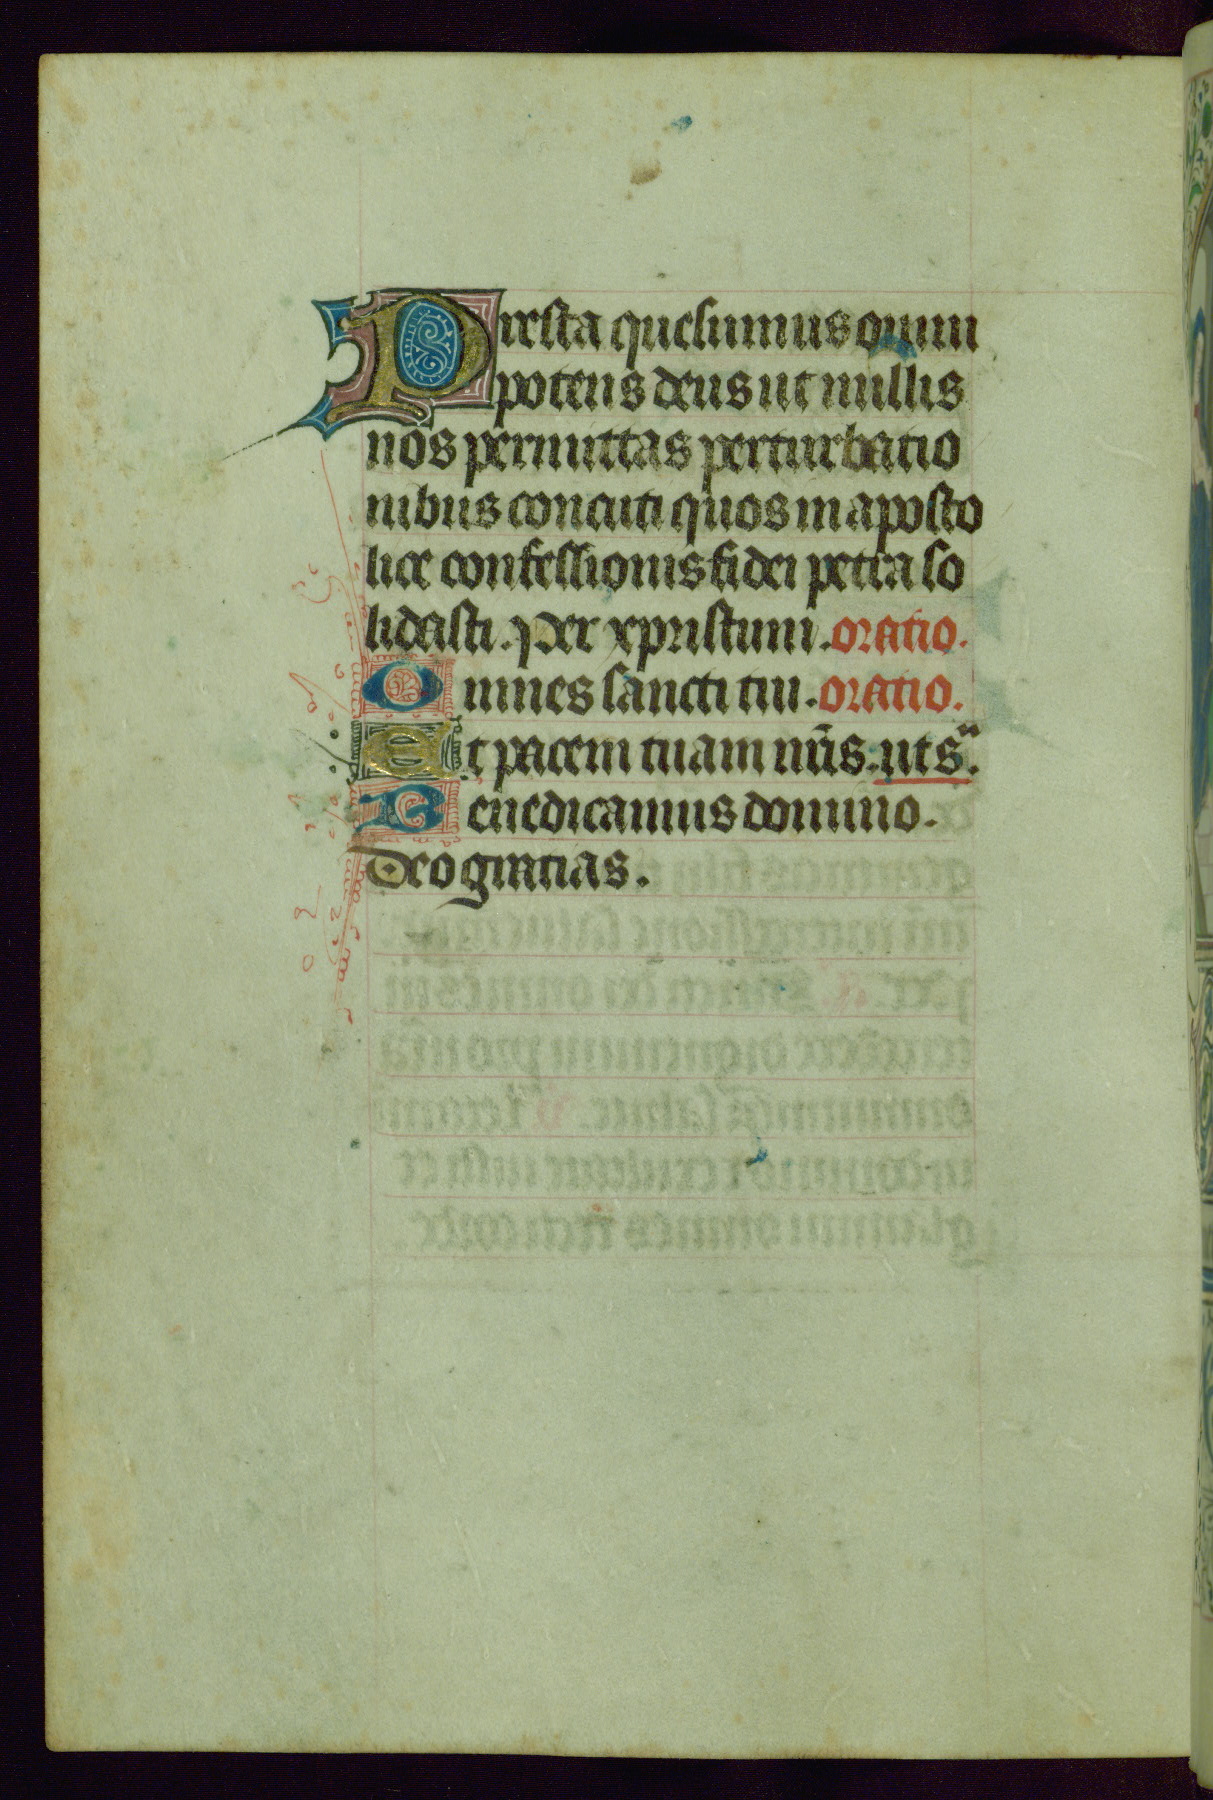 Presta quesumus omni
potens deus ut nullis
nos permittas perturbatio
nibus concuti quos in aposto
lice confessionis fidei petra so
lidasti. Per xpristum. oratio.
Omnes sancti tui. oratio.
Et pacem tuam nr̄is. ut sᵃ.
Benedicamus domino.
Deo gratias.